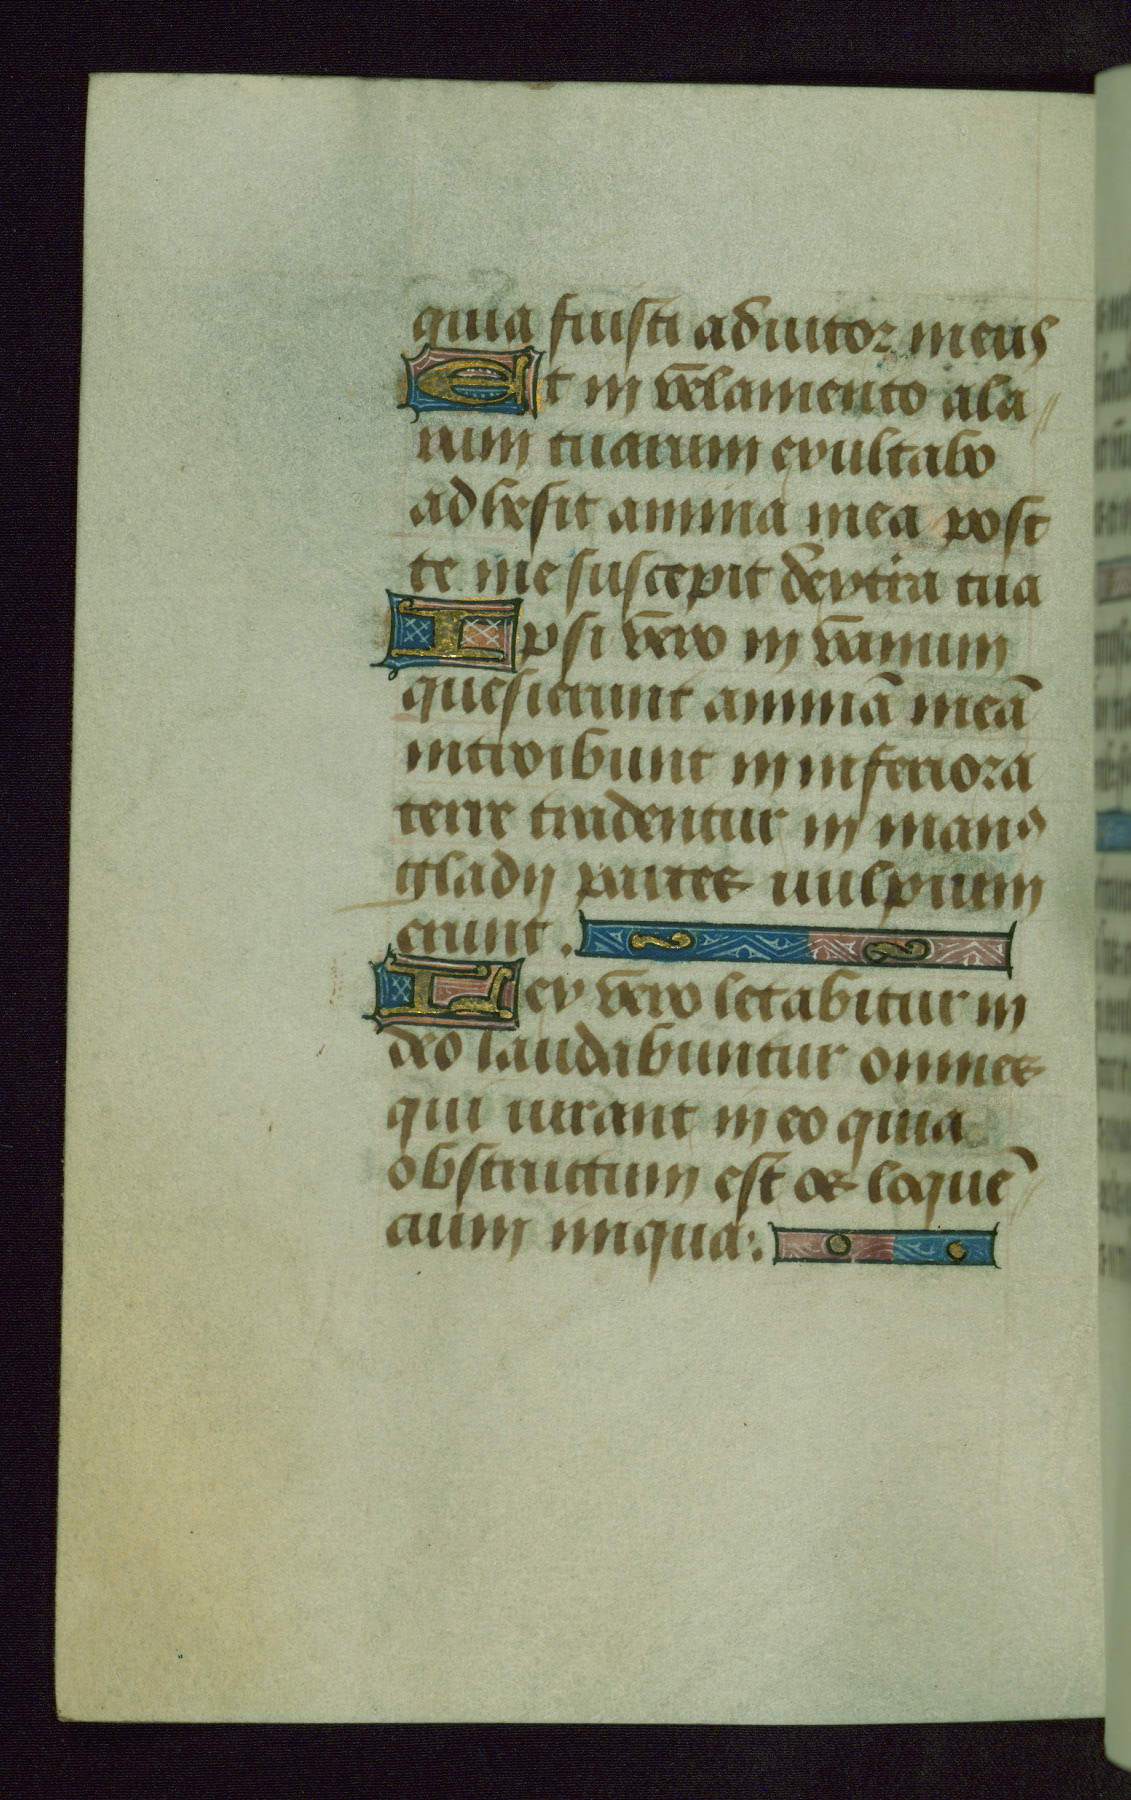 quia fuisti adiutor meus
Et in velamento ala
rum tuarum exultabo
adhesit anima mea post
te me suscepit dextra tua
Ipsi vero in vanum
quesierunt animā meā
introibunt in inferiora
terre tradentur in manꝰ
gladij partes vulpium
erunt.
Rex vero letabitur in
deo laudabuntur omnes
qui iurant in eo quia
obstructum est os loquē
cium iniqua:.